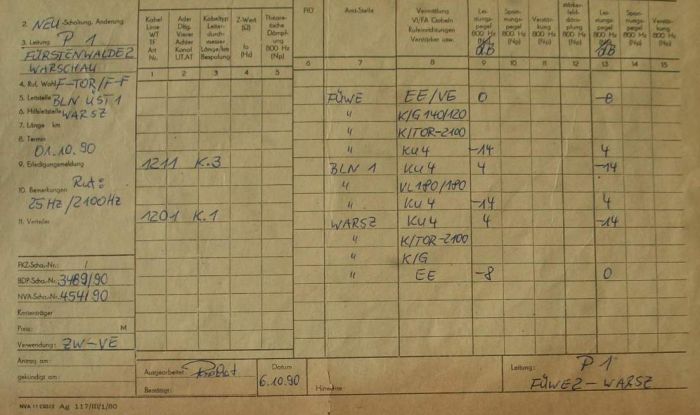 2. NEU-Schaltung, Änderung
3. Leitung P 1
FÜRSTENWALDE 2
WARSCHAU
4. Ruf, Wahl F-TOR/F-F
5. Leitstelle BLN ÜST 1
6. Hilfsleitstelle WARSZ
7. Länge km
8. Termin
01.10.90
9. Erledigungsmeldung
10. Bemerkungen Ruf:
25 Hz / 2100 Hz
11. Verteiler
FKZ-Scha.-Nr.: /
BDP-Scha.-Nr. 3489/90
NVA-Scha.-Nr. 454/90
Kostenträger
Preis: M
Verwendung: ZW-VE
Antrag am:
gekündigt am:
NVA Ag 117/III/1/80
Kabel Linie WT TF Art Nr.
Ader Dltg. Vierer Achter Kanal ÜT.AT
Kabeltyp Leiter- durch- messer Länge/km Bespulung
Z-Wert (Ω) fo (Hz)
Theore- tische Dämp- fung 800 Hz (Np)
FKI
Amt-Stelle
Vermittlung VL/FA Gabeln Rufeinrichtungen Verstärker usw.
Lei- stungs- pegel 800 Hz dB
Span- nungs- pegel 800 Hz (Np)
Verstär- kung 800 Hz (Np)
dämp- fung 800 Hz (Np)
Lei- stungs- pegel 800 Hz dB
Span- nungs- pegel 800 Hz (Np)
Verstär- kung 800 Hz (Np)
1 2 3 4 5 6 7 8 9 10 11 12 13 14 15
FÜWE EE/VE 0 -8
" K/G 140/120
" K/TOR-2100
" KU4 -14 4
1211 K.3 BLN 1 KU4 4 -14
" VL 180/180
" KU4 -14 4
1201 K.1 WARSZ KU4 4 -14
" K/TOR-2100
" K/G
" EE -8 0
Ausgearbeitet:
Bestätigt:
Datum
6.10.90
Hinweise:
Leitung: P 1
FÜWE 2 - WARSZ